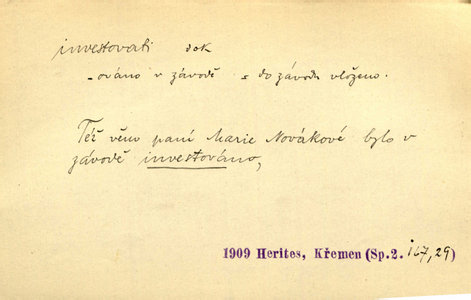 investovati dok
-ováno v závodě = do závodu vloženo.
Též věno paní Marie Novákové bylo v
závodě investováno,
1909 Herites, Křemen (Sp. 2. 167, 29)